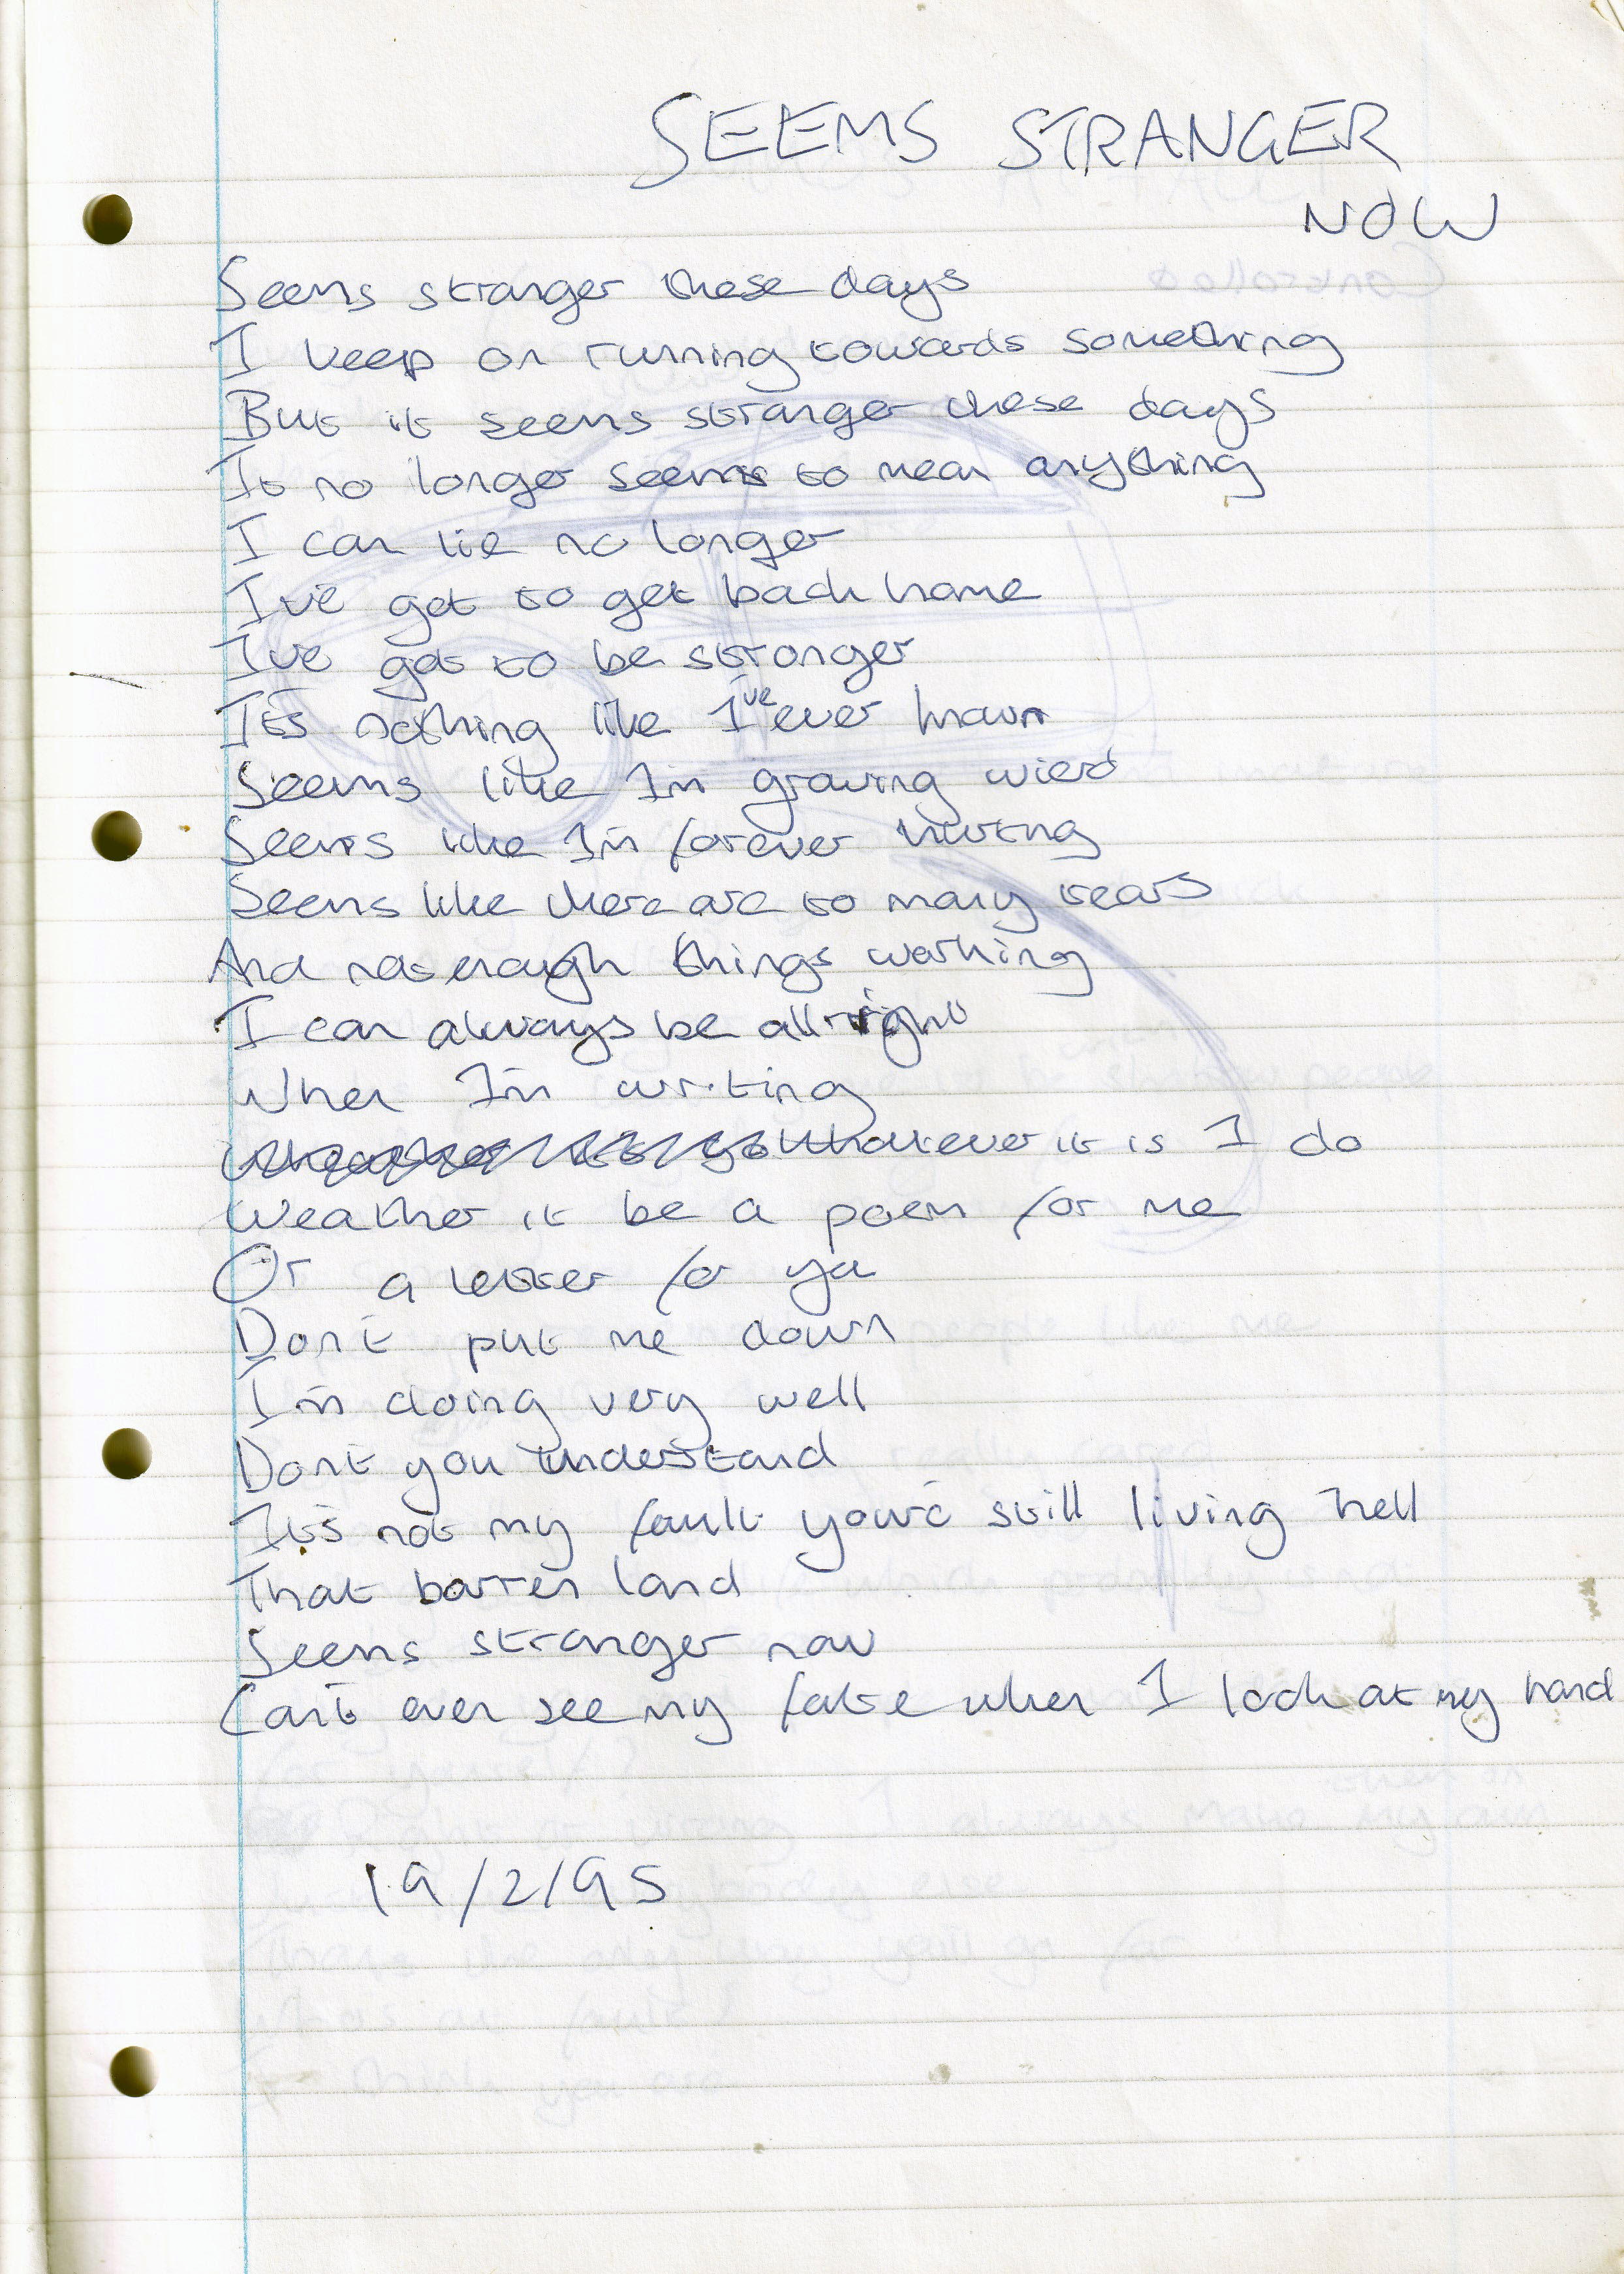 SEEMS STRANGER
NOW
Seems stranger these days
I keep on running towards something
But it seems stranger these days
It no longer seems to mean anything
I can lie no longer
I've got to get back home
I've got to be stronger
It's nothing like I've ever known
Seems like I'm growing wierd
Seems like I'm forever hurting
Seems like there are so many tears
And not enough things working
I can always be allright
When I'm writing
Whatever it is I do
Weather it be a poem for me
Or a letter for ya
Don't put me down
I'm doing very well
Don't you understand
It's not my fault you're still living hell
That barren land
Seems stranger now
Can't even see my fate when I look at my hand
19/2/95